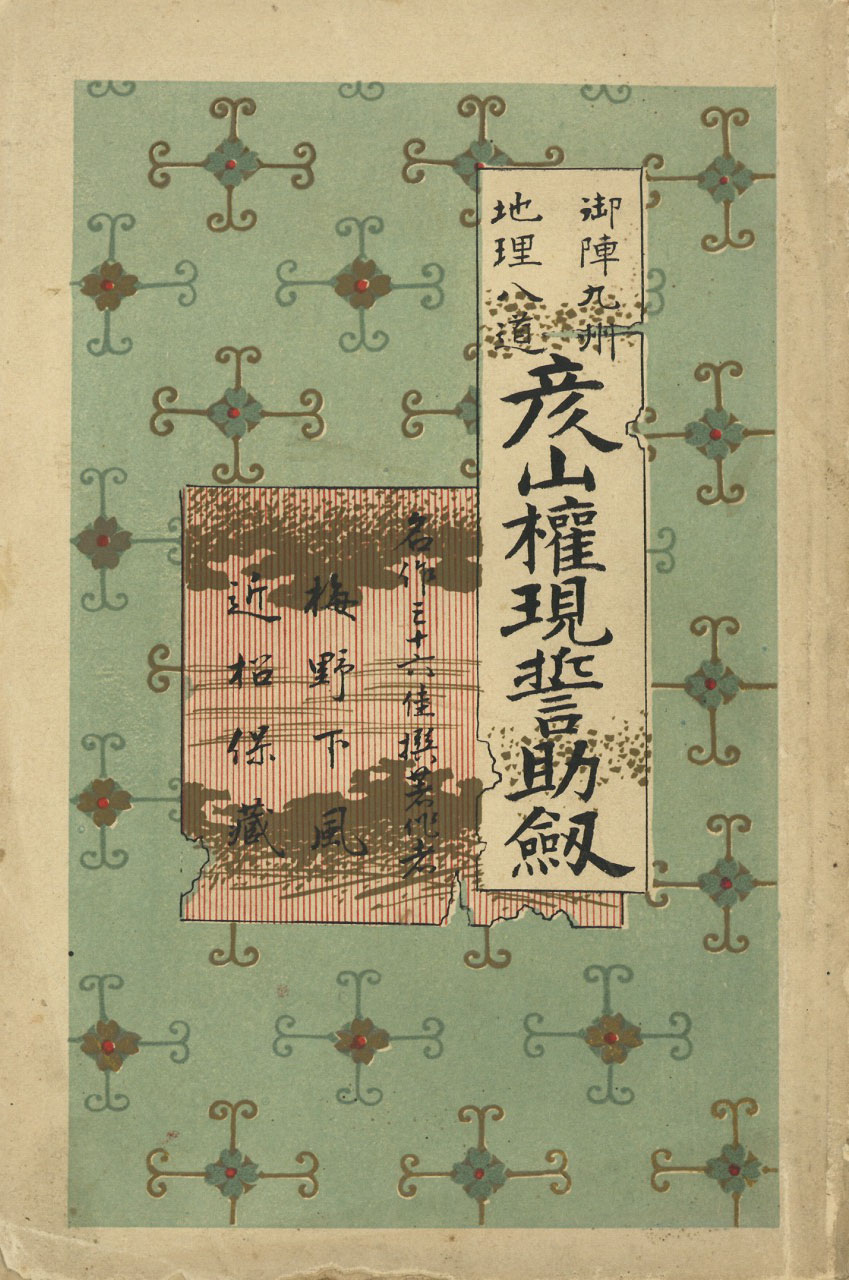 御陣九州
地理八道
彦山權現誓助劔
名作三十六佳撰著作者
梅野下風
近松保藏